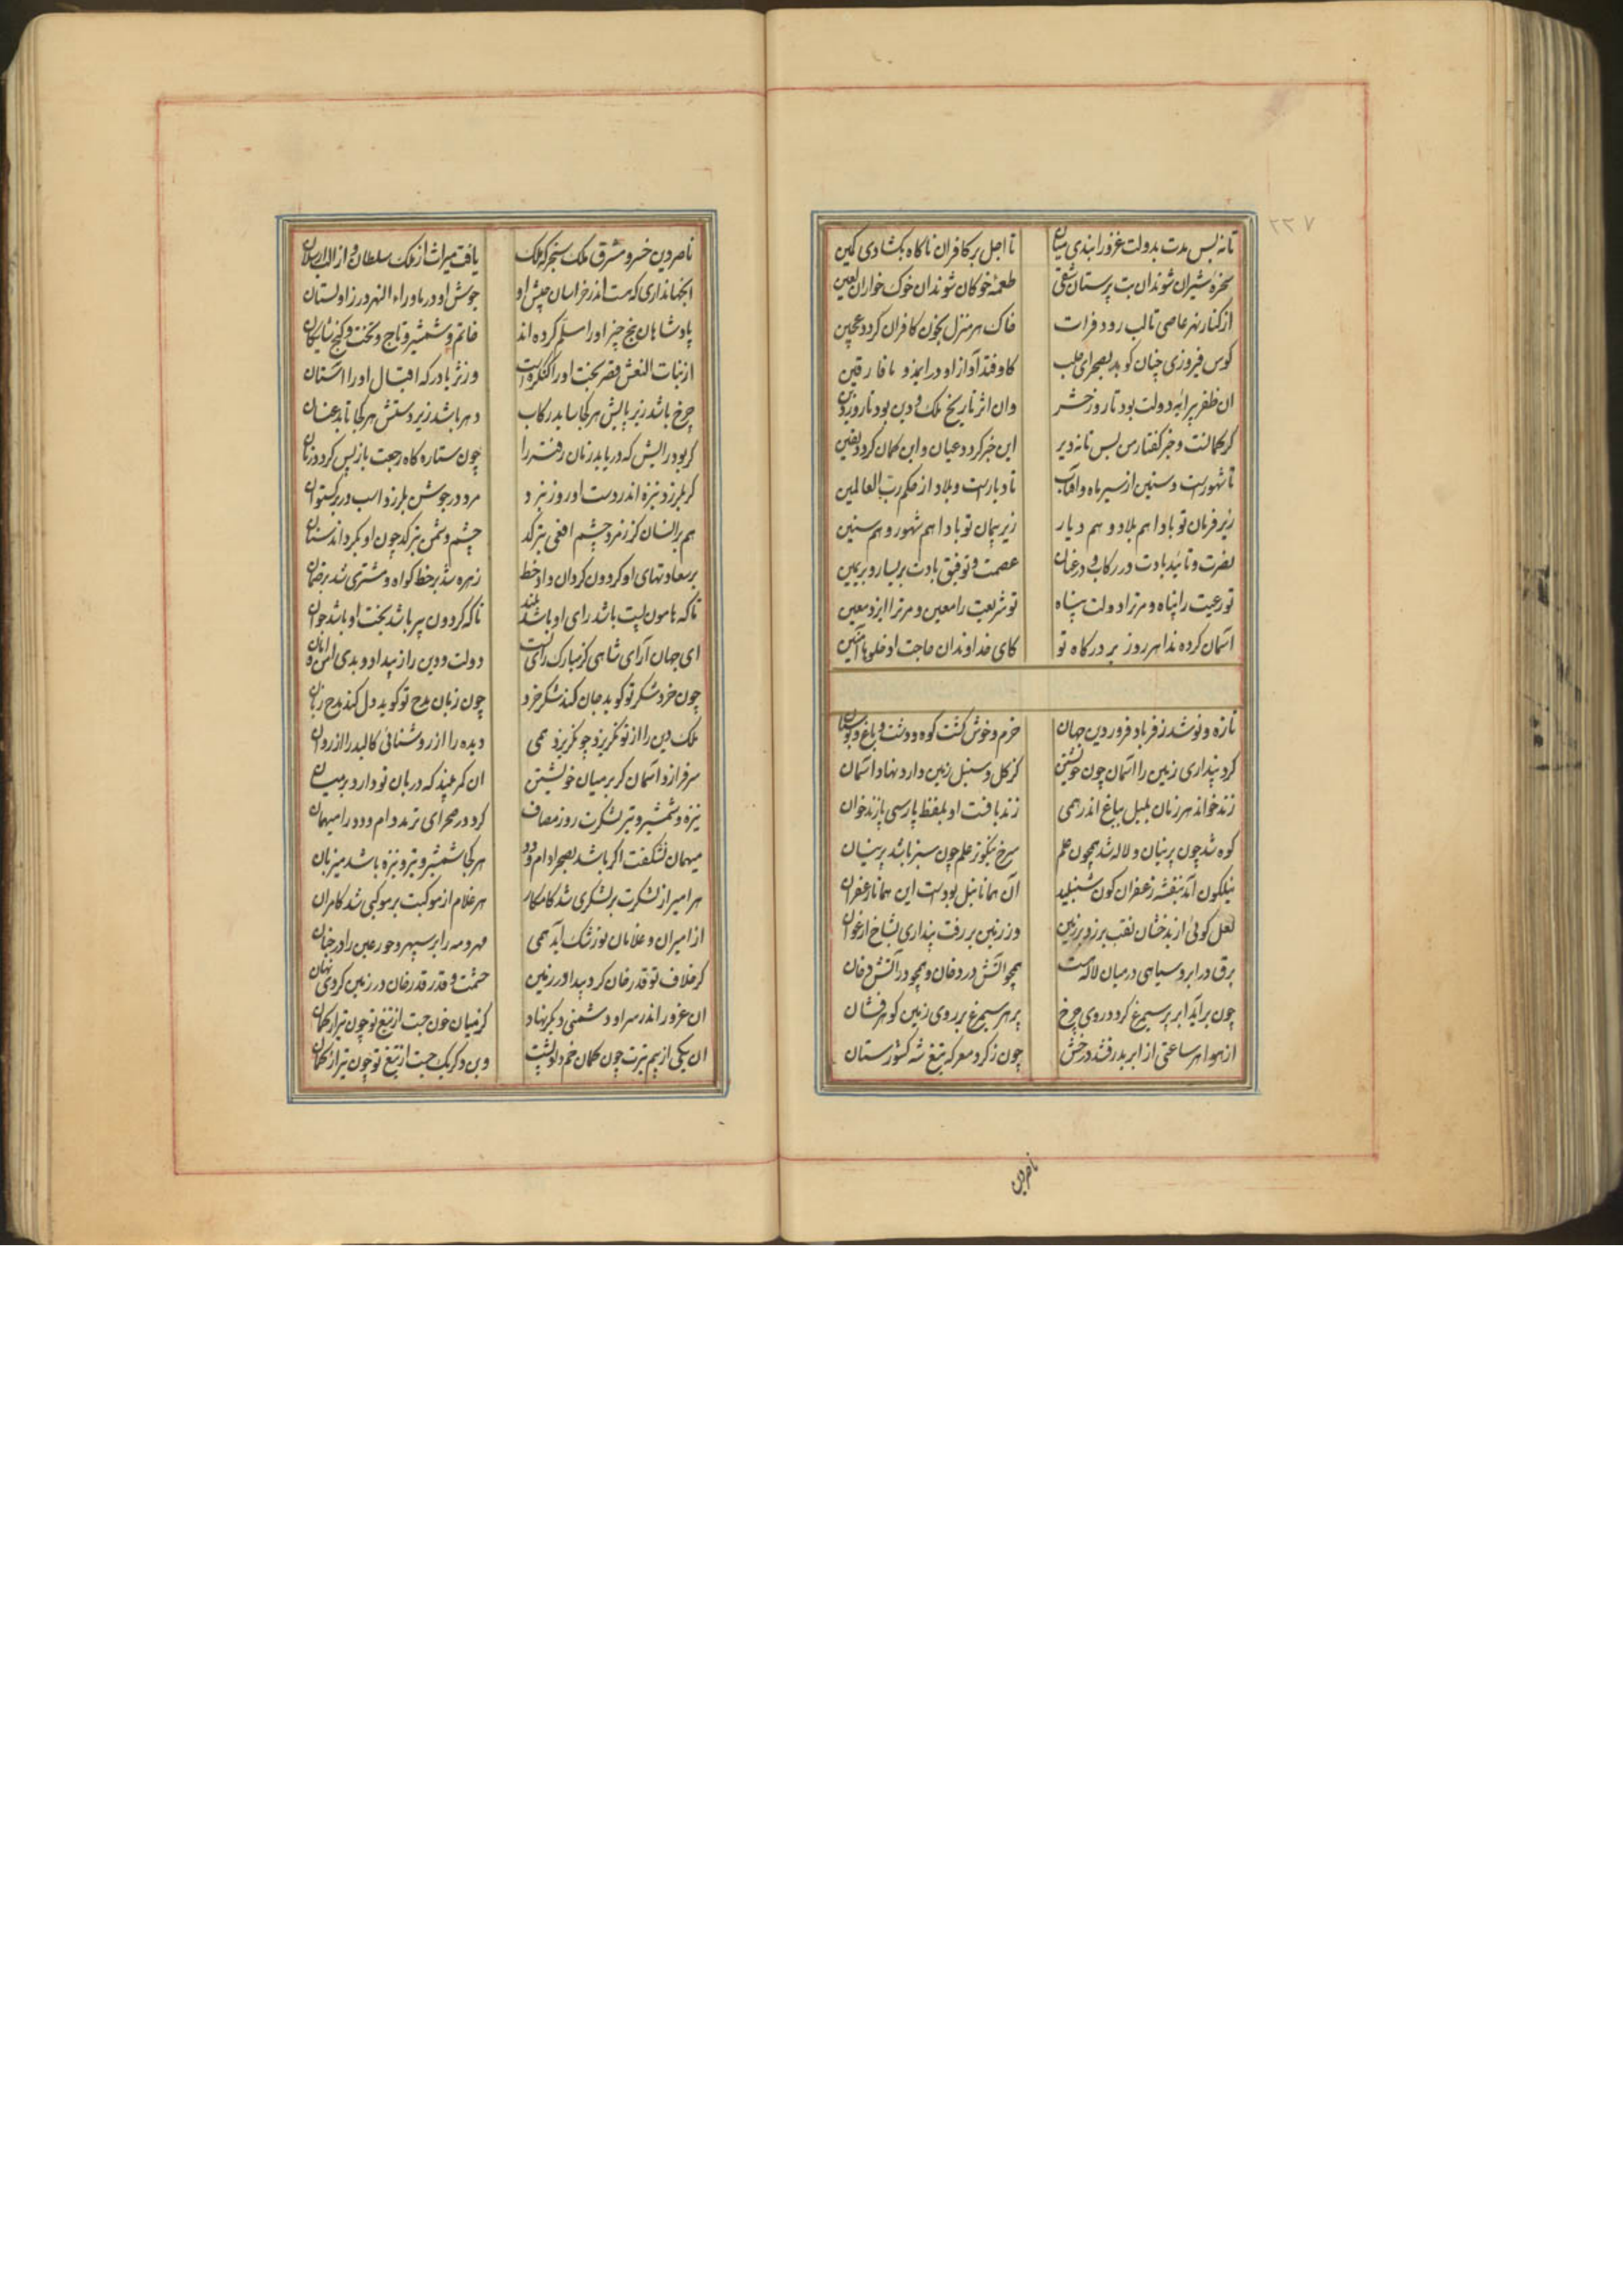 ۲۲۷
تا نه بس مدت بدولت غزو را بندی میان تا اجل بر کافران ناگاه بگشادی کمین
سخره شیران شوند ان بت پرستان شقی طعمه خوکان شوند ان خوک خواران لعین
از کنار نهر عاصی تا لب رود فرات خاک هر منزل بخون کافران کردد عجین
کوس فیروزی چنان کوبد بصحرای حلب کاوفتد آواز او در امد و میافارقین
ان ظفر پیرایه دولت بود تا روز حشر وان اثر تاریخ ملک و دین بود تا روز دین
کر کمانست و خبر گفتار من بس تا نه دیر این خبر کردد عیان و این کمان کردد یقین
تا شهورست و سنین از سیر ماه و آفتاب تا دیارست و بلاد از حکم رب العالمین
زیر فرمان تو بادا هم بلاد و هم دیار زیر پیمان تو بادا هم شهور و هم سنین
نصرت و تائید بادت در رکاب و در عنان عصمت و توفیق بادت بر یسار و بر یمین
تو رعیت را پناه و مر ترا دولت پناه تو شریعت را معین و مر ترا ایزد معین
آسمان کرده ندا هر روز بر درکاه تو کای خداوندان حاجت ادخلوها آمنین
تازه و نو شد ز فر باد فروردین جهان خرم و خوش کشت کوه و دشت و باغ و بوستان
کرد پنداری زمین را آسمان چون خویشتن کز کل و سنبل زمین دارد نهاد آسمان
زند خواند هر زمان بلبل بباغ اندر همی زند بافت او بلفظ پارسی پازند خوان
کوه شد چون پرنیان و لاله شد همچون علم سرخ نیکوتر علم چون سبز باشد پرنیان
نیلکون آمد بنفشه زعفران کون شنبلید آن همانا نیل بودست این همانا زعفران
لعل کوئی از بدخشان نقب برزد بر زمین وز زمین بر رفت پنداری بشاخ ارغوان
برق در ابر و سیاهی در میان لاله هست همچو آتش در دخان و همچو در آتش دخان
چون برآید ابر پر سیمرغ کردد روی چرخ پر هر سیمرغ بر روی زمین کوهر فشان
از هوا هر ساعتی از ابر بدرفشد درخش چون ز کرد معرکه تیغ شه کشورستان
ناصر دین
ناصر دین خسرو مشرق ملک سنجر که ملک یافت میراث از ملک سلطان و از الب ارسلان
انجهانداری که هست اندر خراسان جیش او جوش او در ماوراء النهر و در زاولستان
پادشاهان پنج چیز او را مسلم کرده اند خاتم و شمشیر و تاج و تخت و کنج شایکان
از بنات النعش قصر بخت او را کنکره است وز ثریا درکه اقبال او را آستان
چرخ باشد زیر پایش هر کجا ساید رکاب دهر باشد زیر دستش هر کجا تابد عنان
کر بود رایش که دریابد زمان رفته را چون ستاره کاه رجعت باز پس کردد زمان
کر بلرزد نیزه اندر دست او روز نبرد مرد در جوشن بلرزد اسب در برکستوان
هم بر انسان کز زمرد چشم افعی بترکد چشم دشمن بترکد چون او بکرداند سنان
بر سعادتهای او کردون کردان داد خط زهره شد بر خط کواه و مشتری شد بر ضمان
تا که هامون پست باشد رای او باشد بلند تا که کردون پیر باشد بخت او باشد جوان
ای جهان آرای شاهی کز مبارک رای تست دولت و دین را ز بیداد و بدی امن و امان
چون خرد شکر تو کوید جان کند شکر خرد چون زبان مدح تو کوید دل کند مدح زبان
ملک و دین را از تو نکریزد چو نکریزد همی دیده را از روشنائی کالبد را از روان
سر فرازد آسمان کر بر میان خویشتن ان کمر بیند که دربان تو دارد بر میان
نیزه و شمشیر و تیر لشکرت روز مصاف کرد در صحرای ترمد دام و دد را میهمان
میهمان نشکفت اکر باشد بصحرا دام و دد هر کجا شمشیر و تیر و نیزه باشد میزبان
هر امیر از لشکرت بر لشکری شد کامکار هر غلام از موکبت بر موکبی شد کامران
از امیران و غلامان تو رشک آید همی مهر و مه را بر سپهر و حور عین را در جنان
کر خلاف تو قدرخان کرد پیدا در زمین حشمت و قدر قدرخان در زمین کردی نهان
ان غرور اندر سر او دشمنی دیکر نهاد کز میان خون جست از تیغ تو چون تیر از کمان
ان یکی از بیم تیرت چون کمان خم داد پشت وین دکر یک جست از تیغ تو چون تیر از کمان